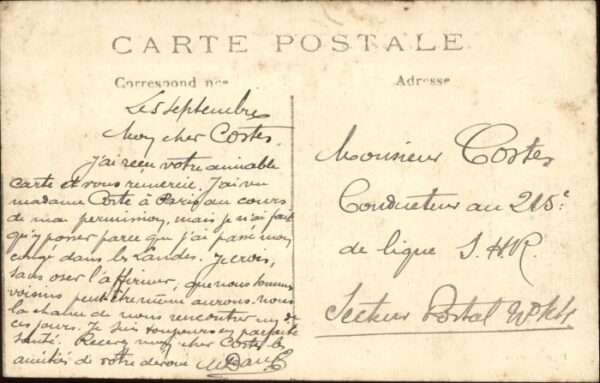 CARTE POSTALE
Correspond nce
Adresse
Le 5 septembre
Mon cher Costes
J'ai reçu votre aimable
carte et vous remercie. J'ai vu
madame Costes à Paris au cours
de ma permission, mais je n'ai fait
qu'y passer parce que j'ai passé mon
congé dans les Landes. Je crois,
sans oser l'affirmer, que nous sommes
voisins peut être même aurons-nous
la chance de nous rencontrer un de
ces jours. Je suis toujours en parfaite
santé. Recevez mon cher Costes les
amitiés de votre dévoué
Monsieur Costes
Conducteur au 215e
de ligne S.H.R.
Secteur Postal